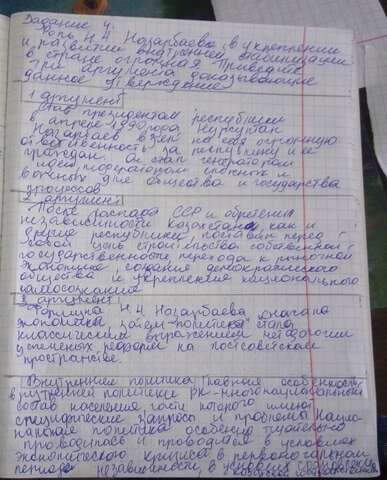 Задание 4.
Роль Н.А. Назарбаева в укреплении
и развитии внутренней политики
в стране огромная. Приведите
три аргумента доказывающие
данное утверждение
1 аргумент
Став президентом республики
в апреле 1990 года Нурсултан
Назарбаев взял на себя огромную
ответственность за и ее
граждан. Он стал генератором
идей модератором сложных и
важных для общества и государства
процессов.
2 аргумент
После распада ССР и обретения
независимости Казахстан, как и
другие республики, поставил перед
собой цель строительства собственной
государственности, перехода к рыночной
экономике, создания демократического
общества и укрепления национального
самосознания
3 аргумент
Формула Н.А. Назарбаева "сначала
экономика, затем политика" стала
классическим выражением методологии
успешных реформ на постсоветском
пространстве.
Внутренняя политика Главная особенность
внутренней политики РК - многонациональный
состав населения, части которого имеют
специфические запросы и проблемы. Нацио-
нальная политика особенно тщательно
проводилась и проводится в условиях
экономического кризиса в первоначальном
периоде независимости, в условиях становления
казахской государственности